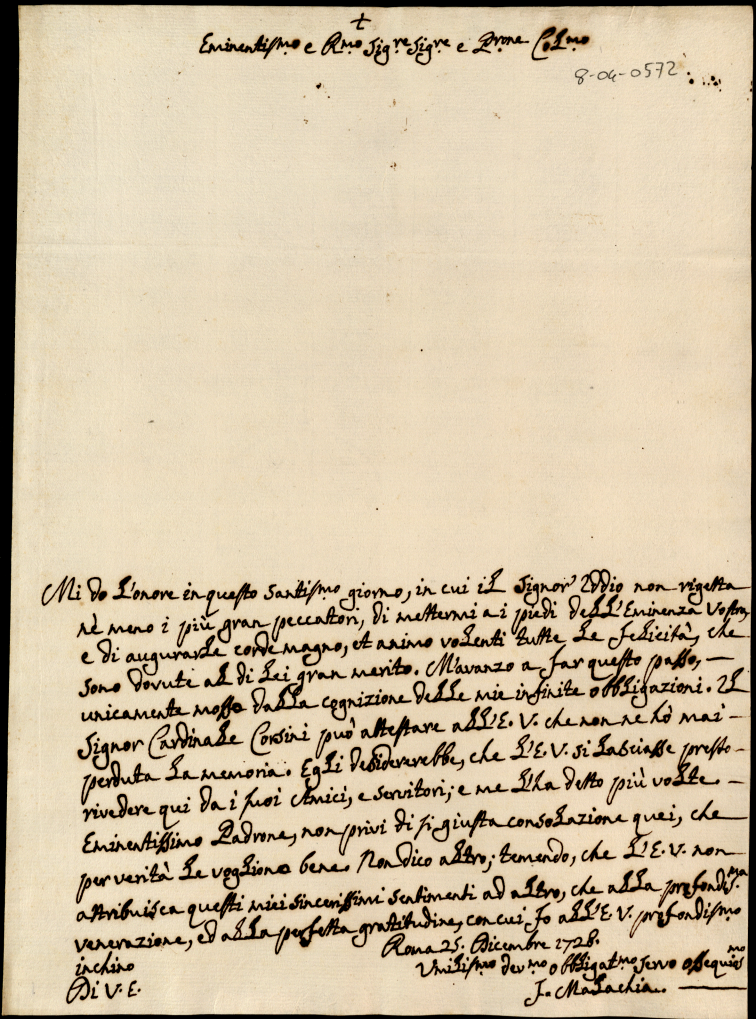 +
Eminentismo e Rmo Sigre Sigre e Prone Colmo
8-04-0572
Mi do l'onore in questo Santismo giorno, in cui il Signor' Iddio non rigetta
nè meno i più gran peccatori, di mettermi a i piedi dell'Eminenza Vostra,
e di augurarle corde magno, et animo volenti tutte le felicità, che
sono dovute al di lei gran merito. M'avanzo a far questo passo, —
unicamente mosso dalla cognizione delle mie infinite obbligazioni. Il
Signor Cardinale Corsini può attestare all'E. V. che non ne hò mai —
perduta la memoria. Egli desidererebbe, che l'E. V. si lasciasse presto —
rivedere qui da i suoi Amici, e servitori; e me l'ha detto più volte. —
Eminentissimo Padrone, non privi di sì giusta consolazione quei, che
per verità le vogliono bene. Non dico altro; temendo, che l'E. V. non —
attribuisca questi miei sincerissimi sentimenti ad altro, che alla profondisma
venerazione, ed alla perfetta gratitudine, con cui Io all'E. V. profondismo
inchino
Roma 25. Dicembre 1728.
Di V. E.
Umilismo devmo obbligatmo servo ossequiosmo
F. Malachia. —